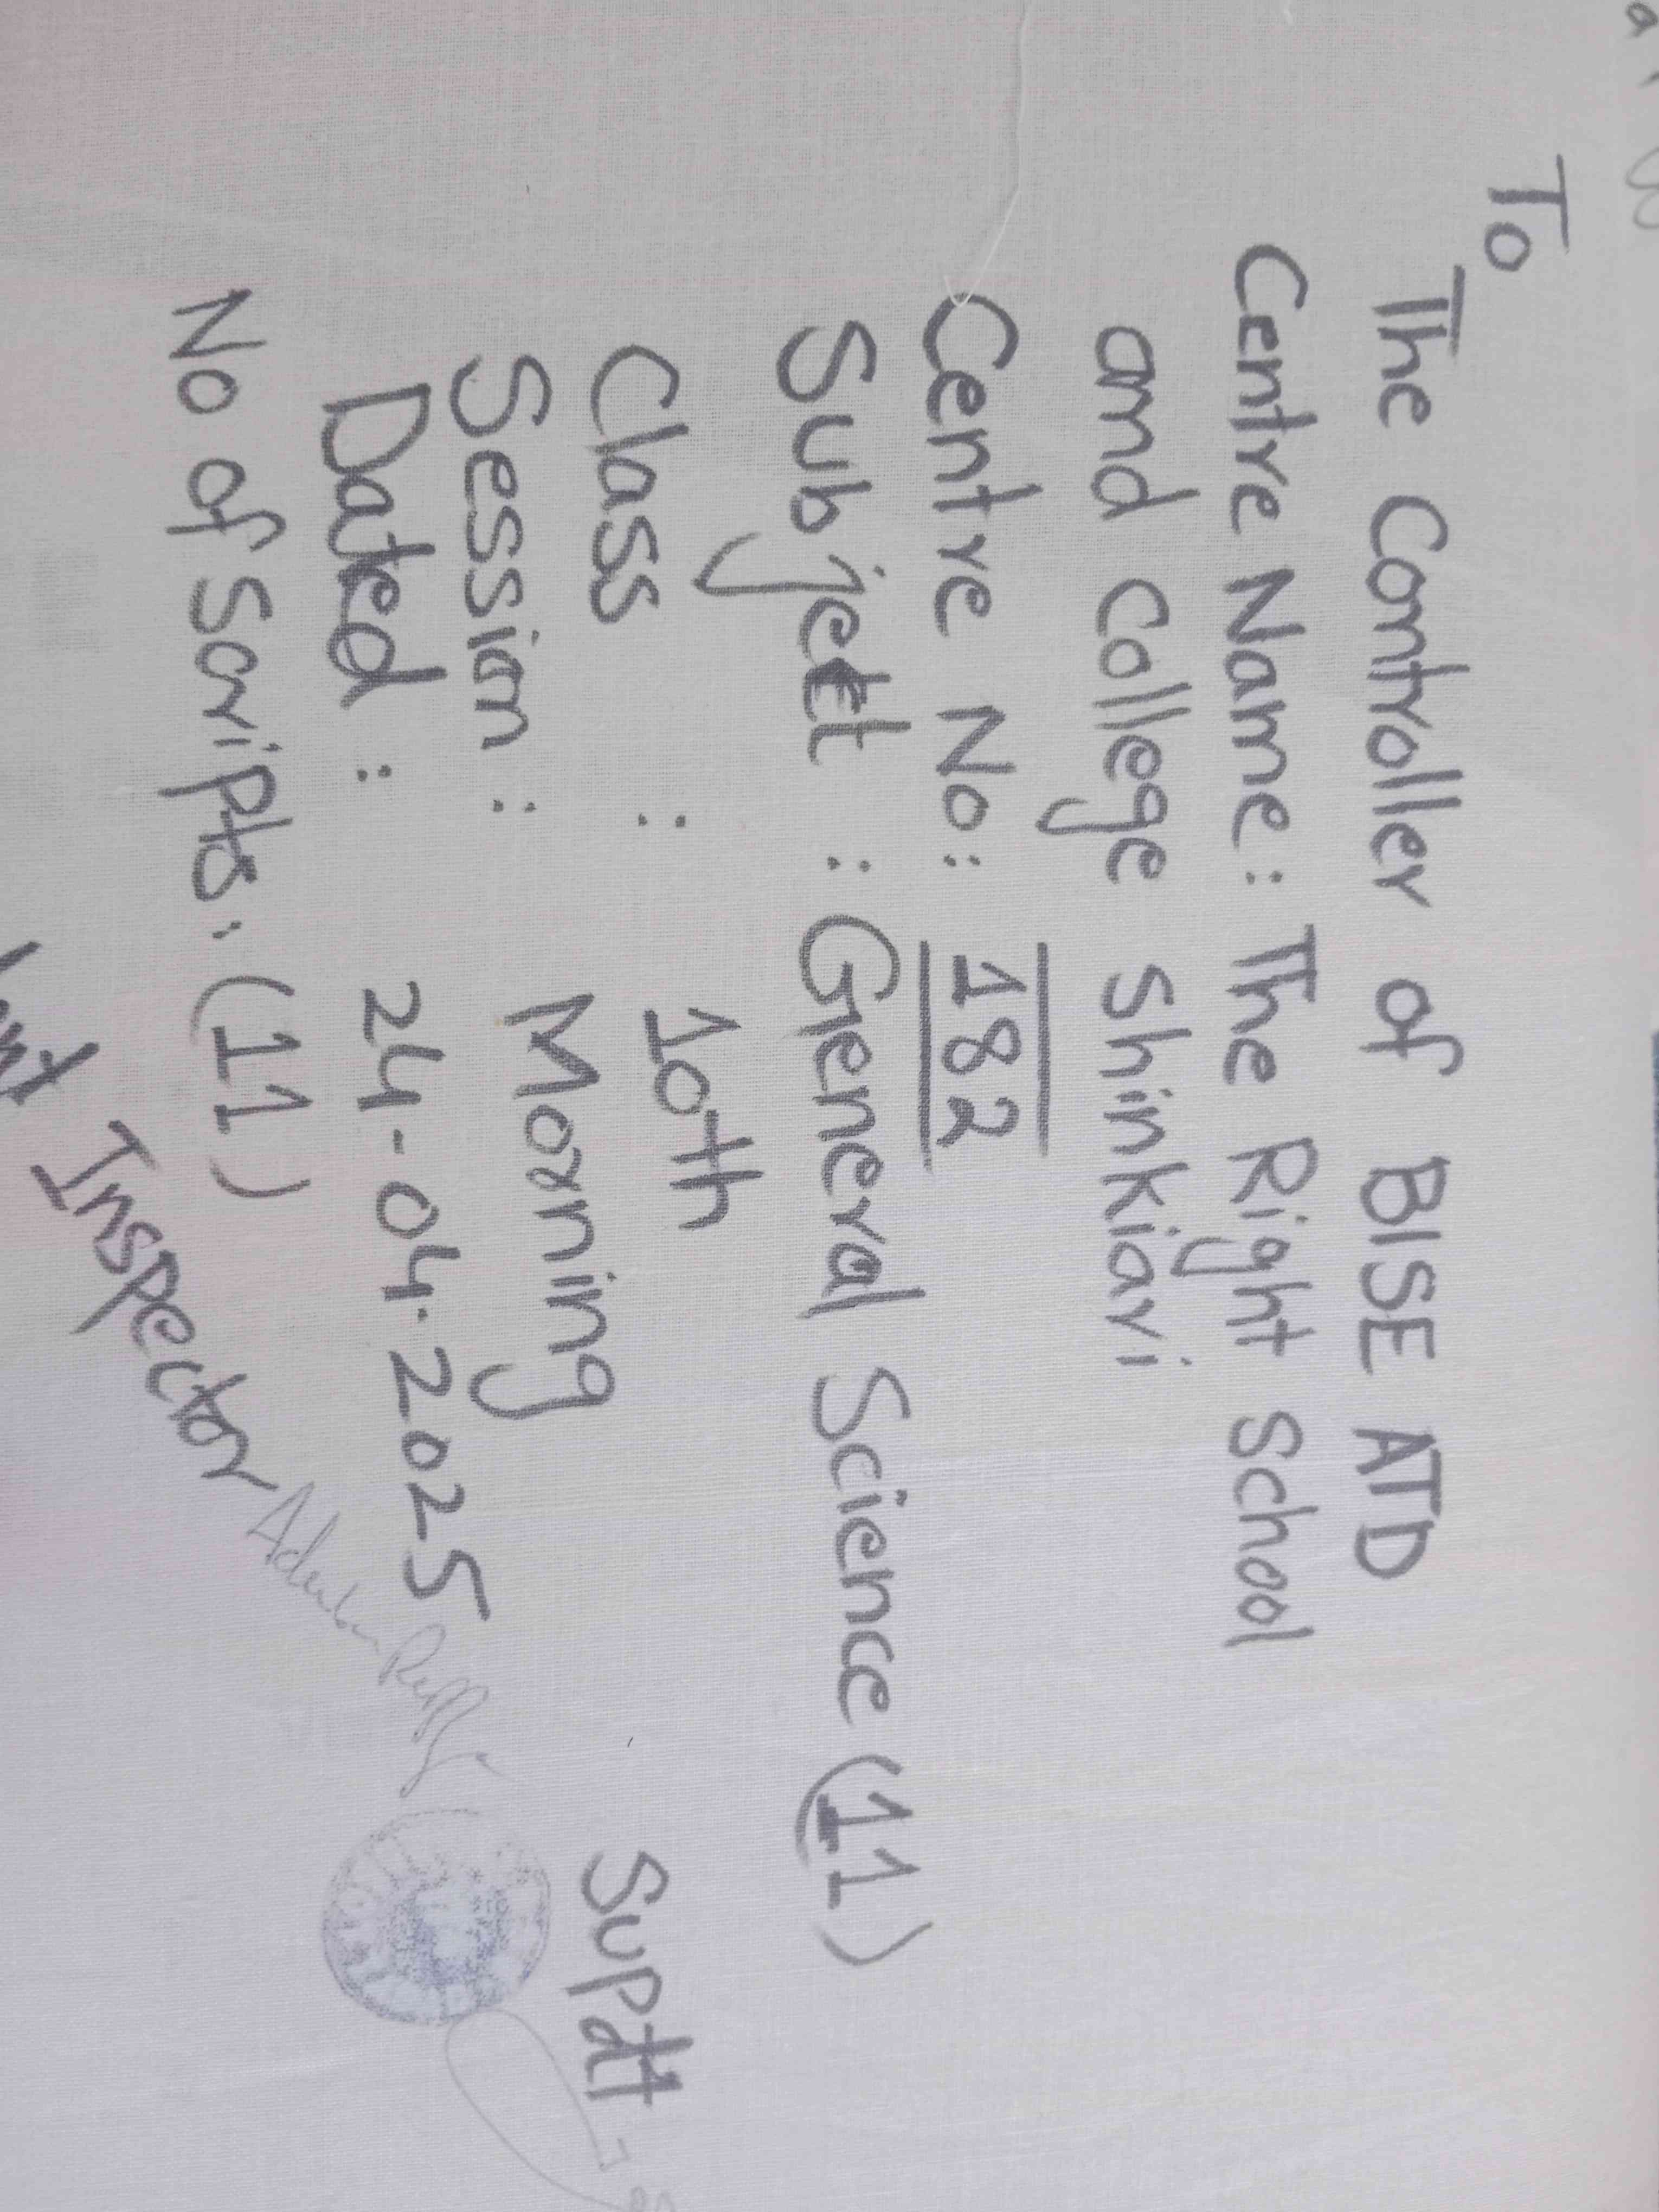 To
The Controller of BISE ATD
Centre Name: The Right School
and College Shinkiari
Centre No: 182
Subject : General Science (11)
Class : 10th
Session : Morning
Dated : 24-04-2025
No of Scripts: (11)
Supdtt
Inspector